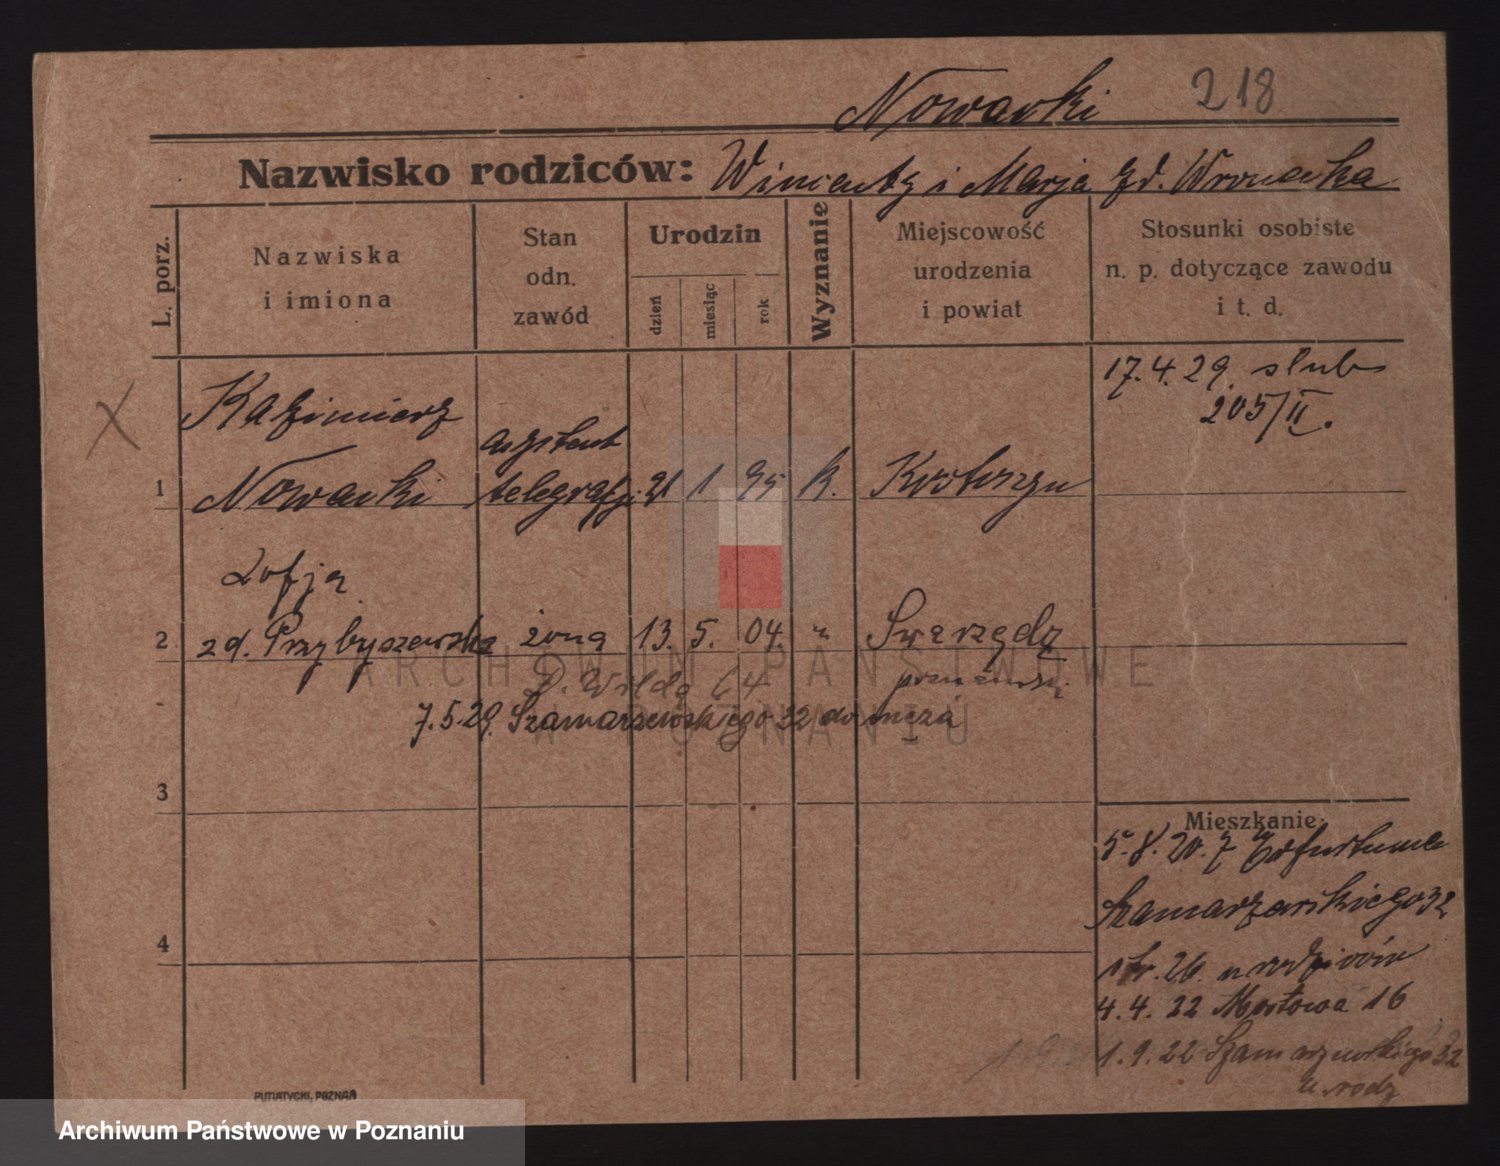 Nowacki 218
Nazwisko rodziców: Wincenty i Marja zd. Wronecka
L. porz.
Nazwiska
i imiona
Stan
odn.
zawód
Urodzin
dzień
miesiąc
rok
Wyznanie
Miejscowość
urodzenia
i powiat
Stosunki osobiste
n. p. dotyczące zawodu
i t. d.
17.4.29. slub
205/II.
X
Kazimierz
asystent
1 Nowacki telegrafji 21 1 95 k. Krotoszyn
Zofja
2 zd. Przybyszewska żona 13. 5. 04. " Swarzędz
D. Wilda 64
7.5.29. Szamarzewskiego 32 do męża
3
4
Mieszkanie:
5.8.20. z Erfurtu
Szamarzewskiego 32
str. 26. u rodziców
4.4.22 Mostowa 16
1.9.22 Szamarzewskiego 32
u rodz
PUTIATYCKI, POZNAŃ
ARCHIWUM PAŃSTWOWE
W POZNANIU
Archiwum Państwowe w Poznaniu